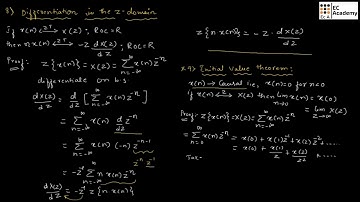 8) Differentiation in the z-domain
if x(n) ZT↔ X(z) ; ROC=R
then n x(n) ZT↔ -z d X(z)/dz ; ROC=R
Proof: Z{x(n)} = X(z) = Σ_{n=-∞}^{∞} x(n) z^{-n}
differentiate on b.s
d X(z)/dz = d/dz [Σ_{n=-∞}^{∞} x(n) z^{-n}]
= Σ_{n=-∞}^{∞} x(n) d/dz z^{-n}
= Σ_{n=-∞}^{∞} x(n) (-n) z^{-n-1}
z^{-n} z^{-1}
= -z^{-1} Σ_{n=-∞}^{∞} n x(n) z^{-n}
d X(z)/dz = -z^{-1} Z{n x(n)}
Z{n x(n)} = -z d X(z)/dz
9) Initial value theorem:
x(n) → Causal i.e, x(n)=0 for n<0
if x(n) Z↔ X(z) then lim_{n→0} x(n) = x(0)
= lim_{z→∞} X(z)
Proof: Z{x(n)} = X(z) = Σ_{n=-∞}^{∞} x(n) z^{-n}
= Σ_{n=0}^{∞} x(n) z^{-n} = x(0) + x(1) z^{-1} + x(2) z^{-2} .....
= x(0) + x(1)/z + x(2)/z² + .....
EC
Academy